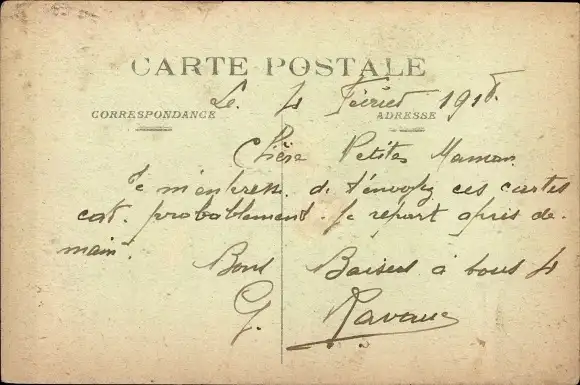 CARTE POSTALE
CORRESPONDANCE
ADRESSE
Le. 4 Février 1918
Chère Petites Maman
Je m'enpresse de t'envoyez ces cartes
cat. probablement. je repart après de-
main.
Bons Baisers à tous 4
G. Ravaux